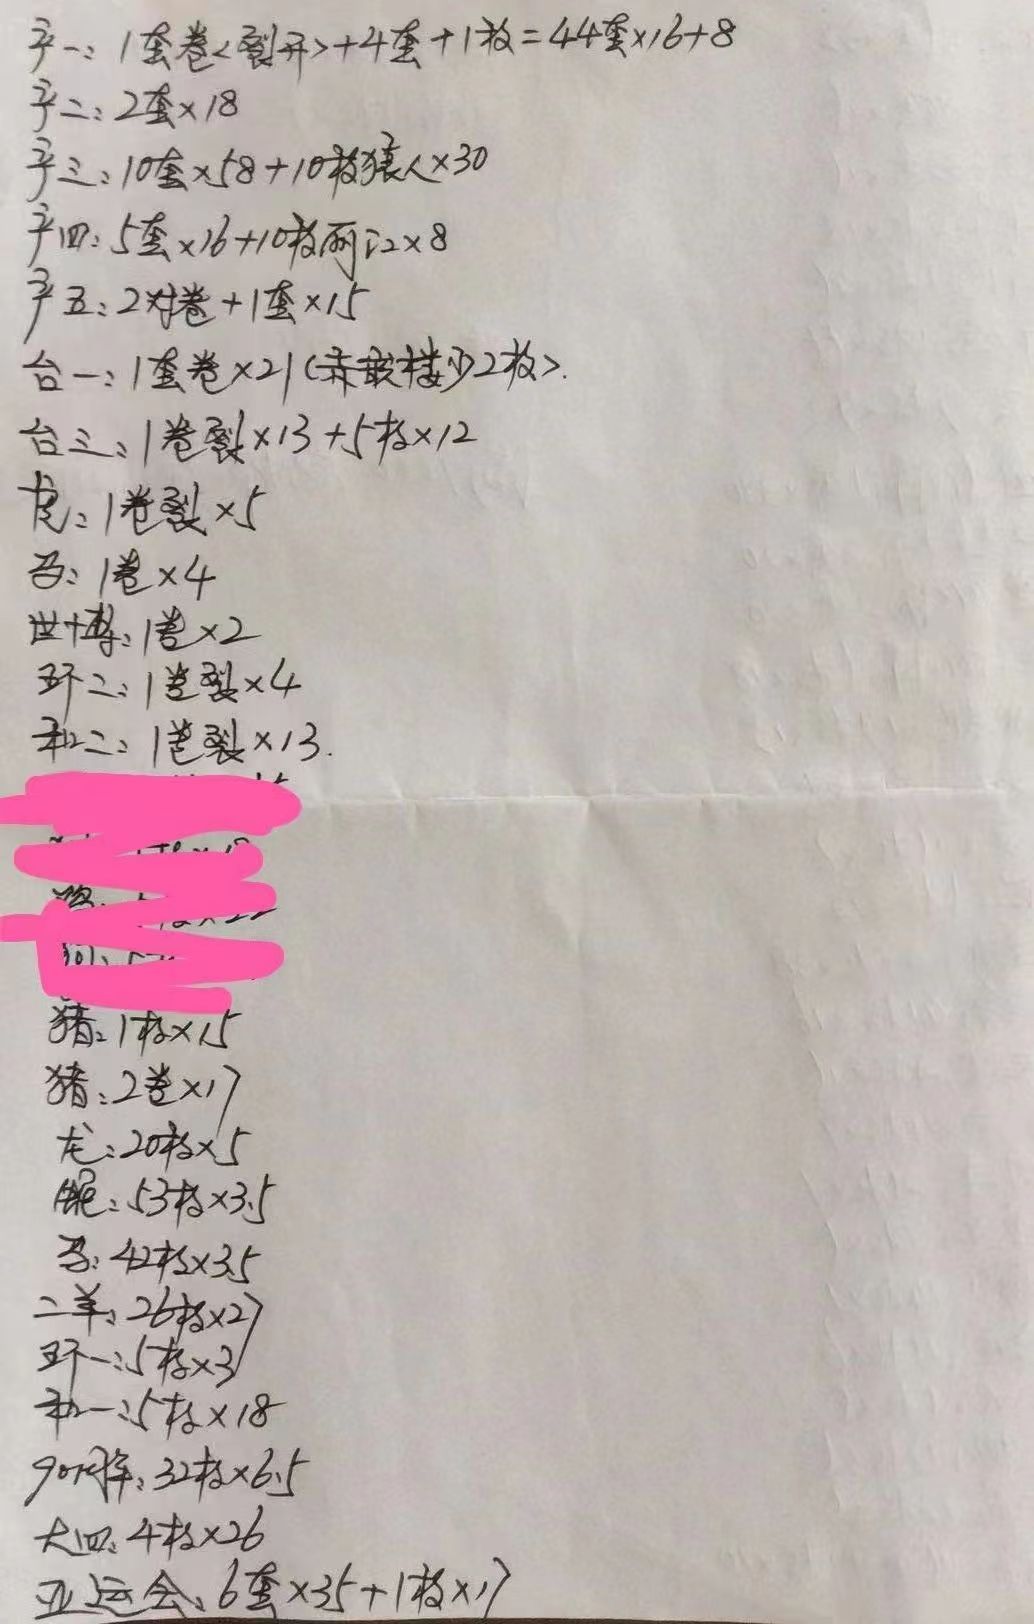 字一: 1套卷<裂开>+4套+1枚=44套×16+8
字二: 2套×18
字三: 10套×58+10枚猿人×30
字四: 5套×16+10枚丽江×8
字五: 2对卷+1套×15
台一: 1套卷×21(赤嵌楼少2枚>.
台三: 1卷裂×13+5枚×12
虎: 1卷裂×5
马: 1卷×4
世博: 1卷×2
环二: 1卷裂×4
和二: 1卷裂×13.
猪: 1枚×15
猪: 2卷×17
龙: 20枚×5
蛇: 53枚×3.5
马: 42枚×3.5
二羊: 26枚×27
环一: 5枚×3
和一: 5枚×18
90周年: 32枚×6.5
大四: 4枚×26
亚运会: 6套×35+1枚×17